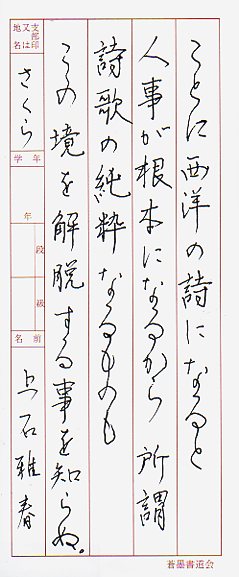 ことに西洋の詩になると
人事が根本になるから所謂
詩歌の純粋なるものも
この境を解脱する事を知らぬ。
支部印又は地名
さくら
学年
年
段
級
名前
上石雅春
蒼墨書道会